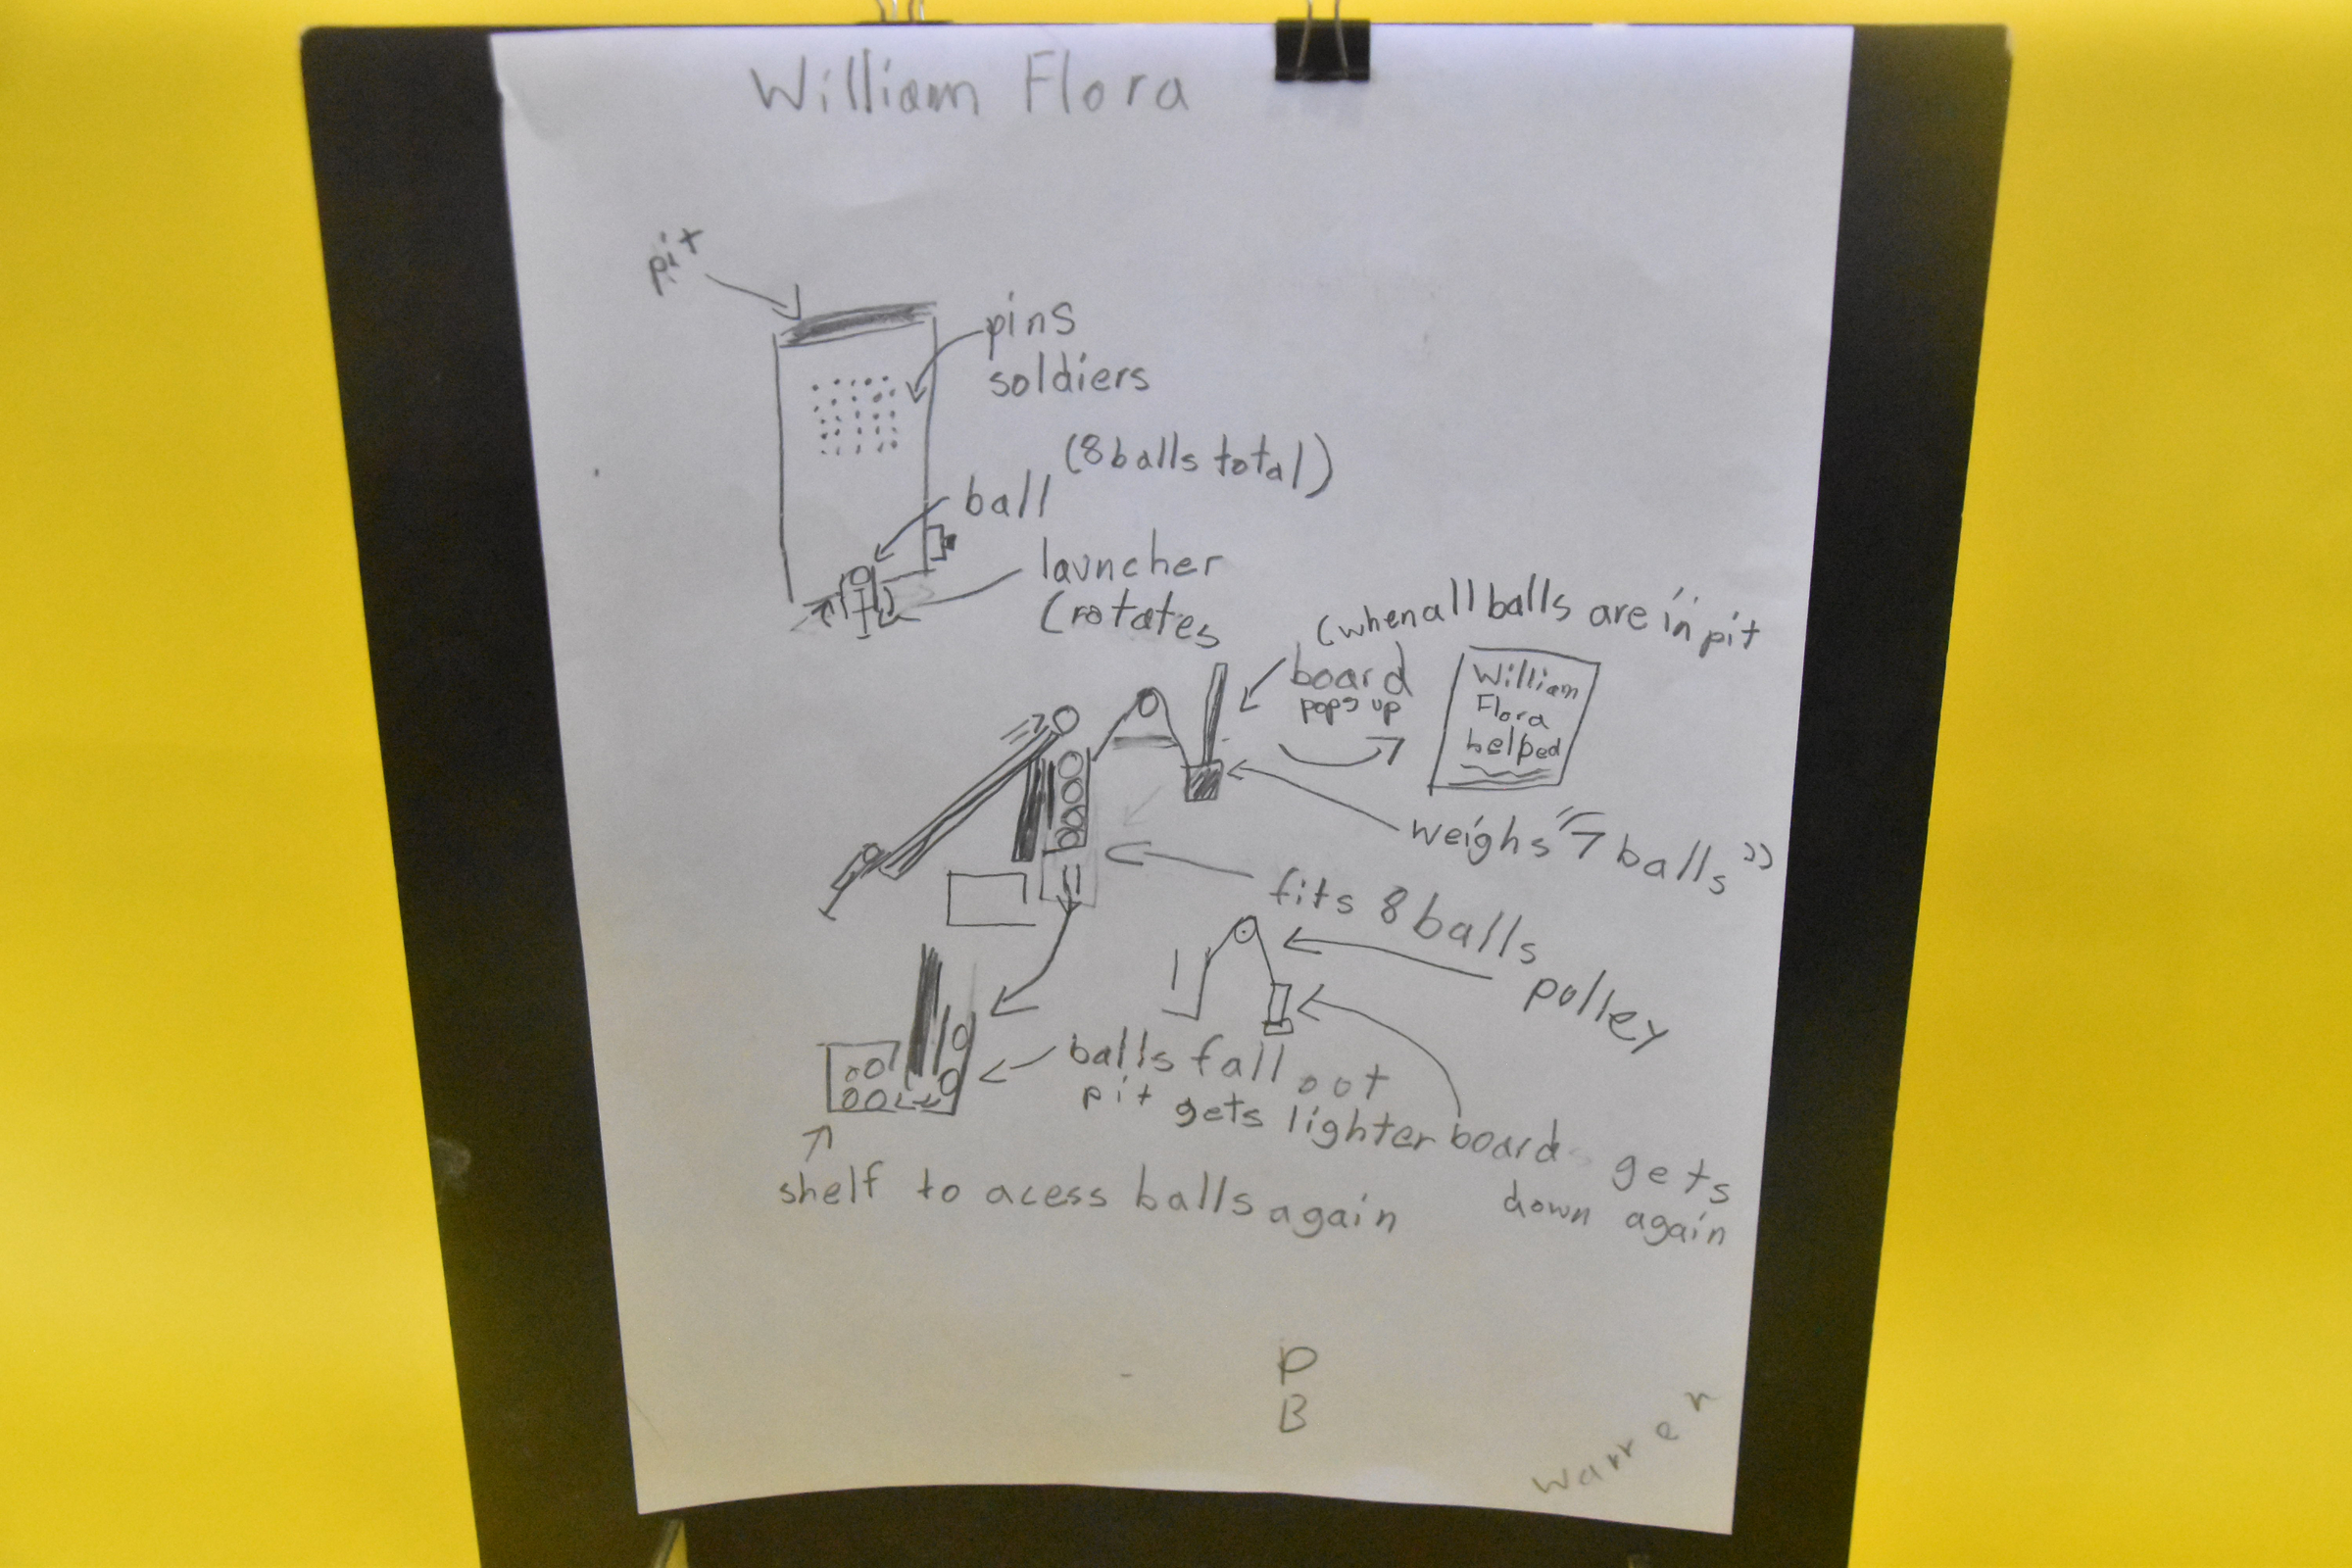 William Flora
pit
pins
soldiers
(8 balls total)
ball
launcher
(rotates
(when all balls are in pit
board
pops up
William
Flora
helped
weighs "7 balls"
fits 8 balls
pulley
balls fall out
pit gets lighter board gets
down again
shelf to acess balls again
P
B
warren